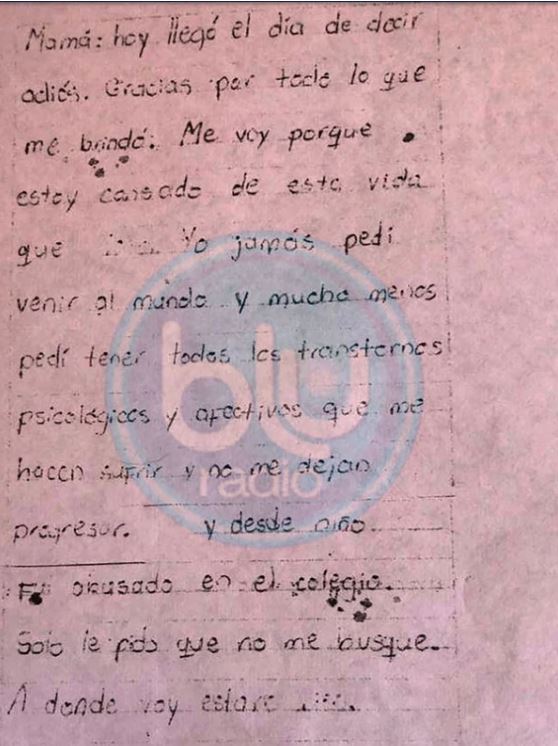 Mamá: hoy llegó el día de decir
adiós. Gracias por todo lo que
me brindó. Me voy porque
estoy cansado de esta vida
que Yo jamás pedí
venir al mundo y mucho menos
pedí tener todos los transtornos
psicológicos y afectivos que me
hacen sufrir y no me dejan
progresar. y desde niño
Fui abusado en el colegio.
Solo le pido que no me busque.
A donde voy estare
blu
radio